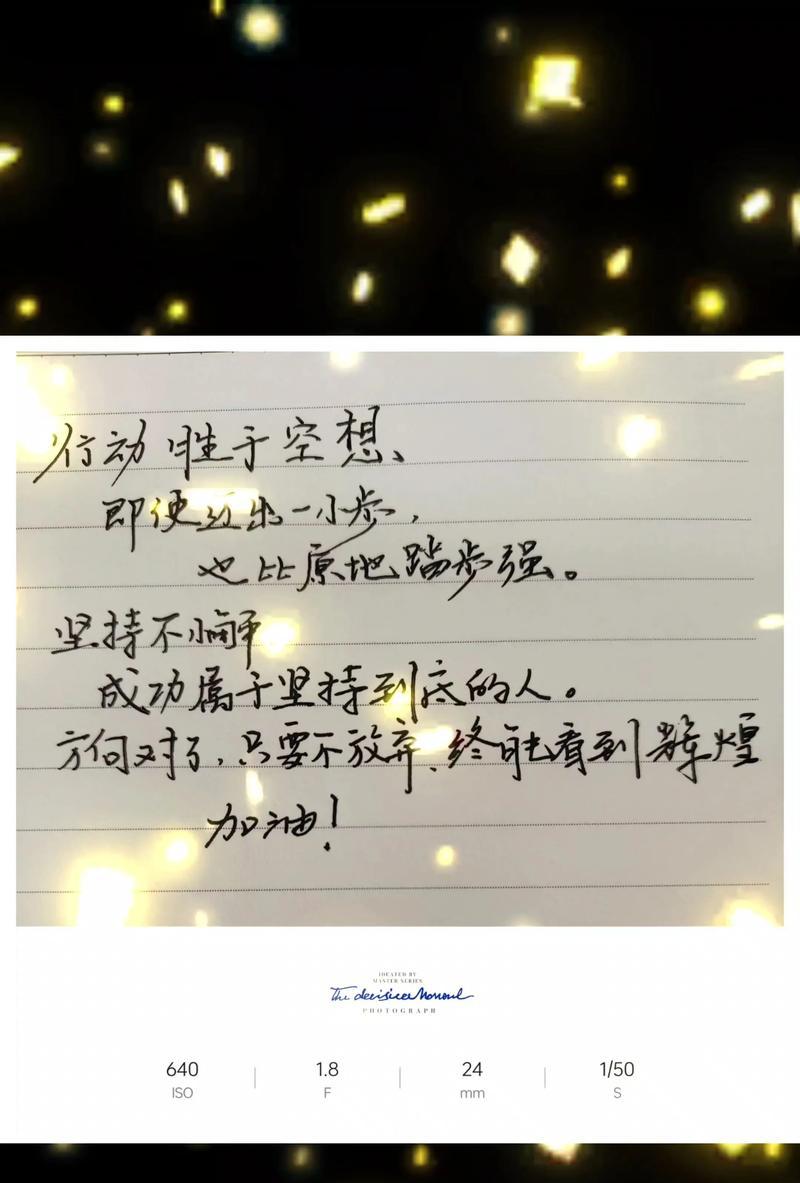 行动胜于空想、
即便迈出一小步,
也比原地踏步强。
坚持不懈
成功属于坚持到底的人。
方向对了,只要不放弃、终能看到辉煌
加油!
IDEATED BY
MASTER SERIES
The decisive Moment
PHOTOGRAPH
640
1.8
24
1/50
ISO
F
mm
S